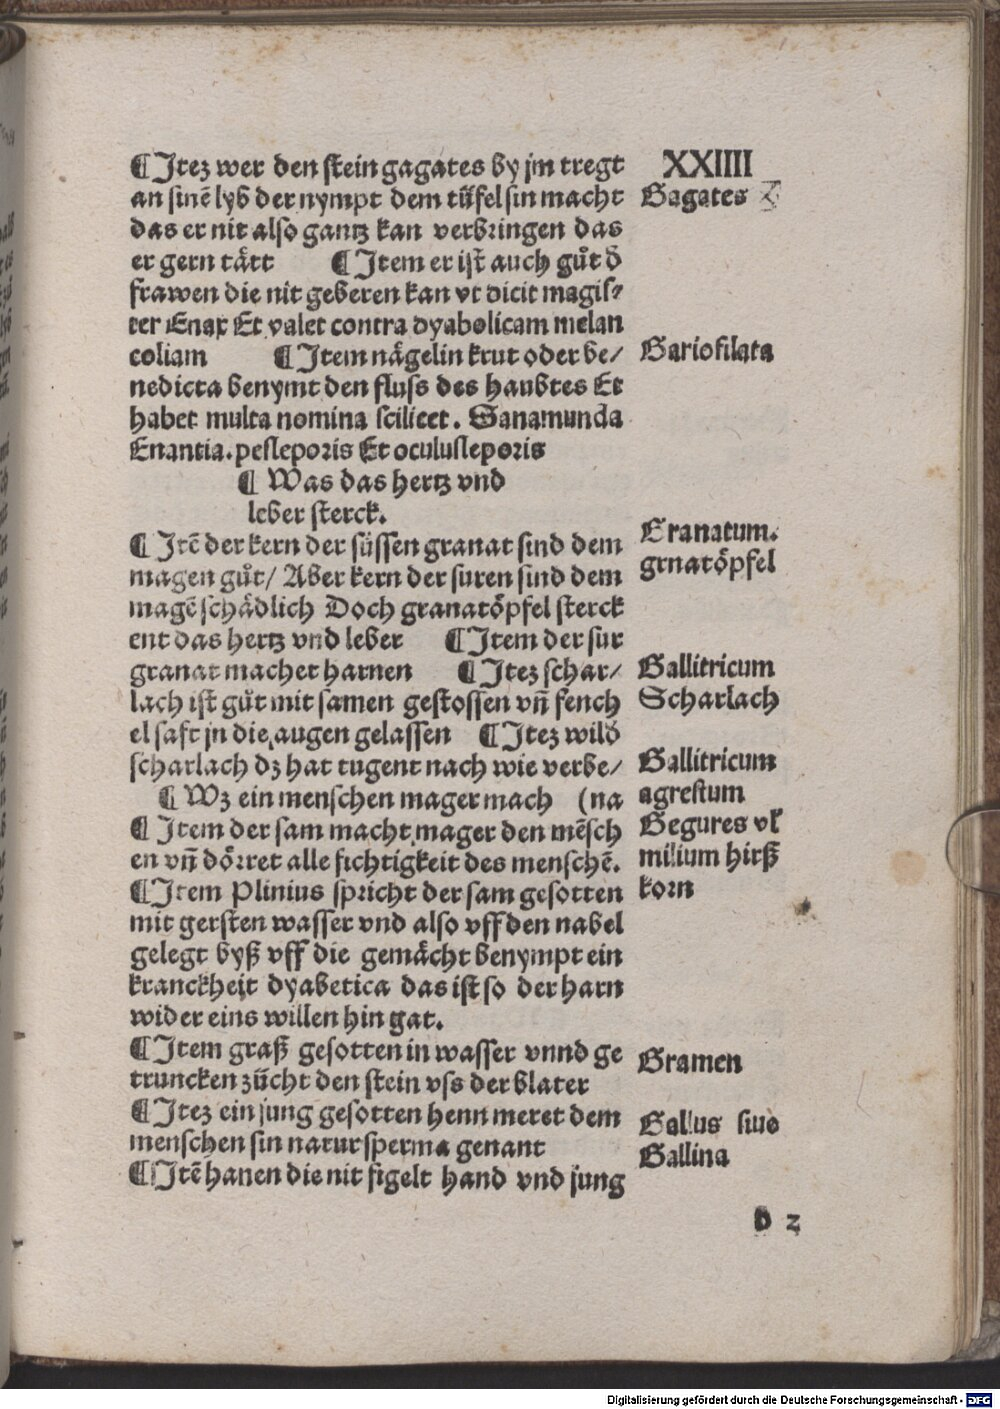 XXIIII
¶ Itez wer den stein gagates by jm tregt
an sinē lyb der nympt dem tüfel sin macht
das er nit also gantz kan verbringen das
er gern tätt ¶ Item er ist auch gůt d̄
frawen die nit geberen kan vt dicit magis⸗
ter Enax Et valet contra dyabolicam melan
coliam ¶ Item nägelin krut oder be/
nedicta benymt den fluss des haubtes Et
habet multa nomina scilicet. Sanamunda
Enantia. pesleporis Et oculusleporis
¶ Was das hertz vnd
leber sterck.
¶ Itē der kern der süssen granat sind dem
magen gůt/ Aber kern der suren sind dem
magē schädlich Doch granatöpfel sterck
ent das hertz vnd leber ¶ Item der sur
granat machet harnen ¶ Itez schar/
lach ist gůt mit samen gestossen vn̄ fench
el saft jn die augen gelassen ¶ Itez wild̄
scharlach dz hat tugent nach wie verbe/
¶ Wz ein menschen mager mach (na
¶ Item der sam macht mager den mēsch
en vn̄ dörret alle fichtigkeit des menschē.
¶ Item Plinius spricht der sam gesotten
mit gersten wasser vnd also vff den nabel
gelegt byß vff die gemächt benympt ein
kranckheit dyabetica das ist so der harn
wider eins willen hin gat.
¶ Item graß gesotten in wasser vnnd ge
truncken zücht den stein vss der blater
¶ Itez ein jung gesotten henn meret dem
menschen sin natur sperma genant
¶ Itē hanen die nit figelt hand vnd jung
Gagates
Gariofilata
Granatum.
grnatöpfel
Gallitricum
Scharlach
Gallitricum
agrestum
Gegures vl̄
milium hirß
korn
Gramen
Gallus siue
Gallina
d 2
Digitalisierung gefördert durch die Deutsche Forschungsgemeinschaft - DFG